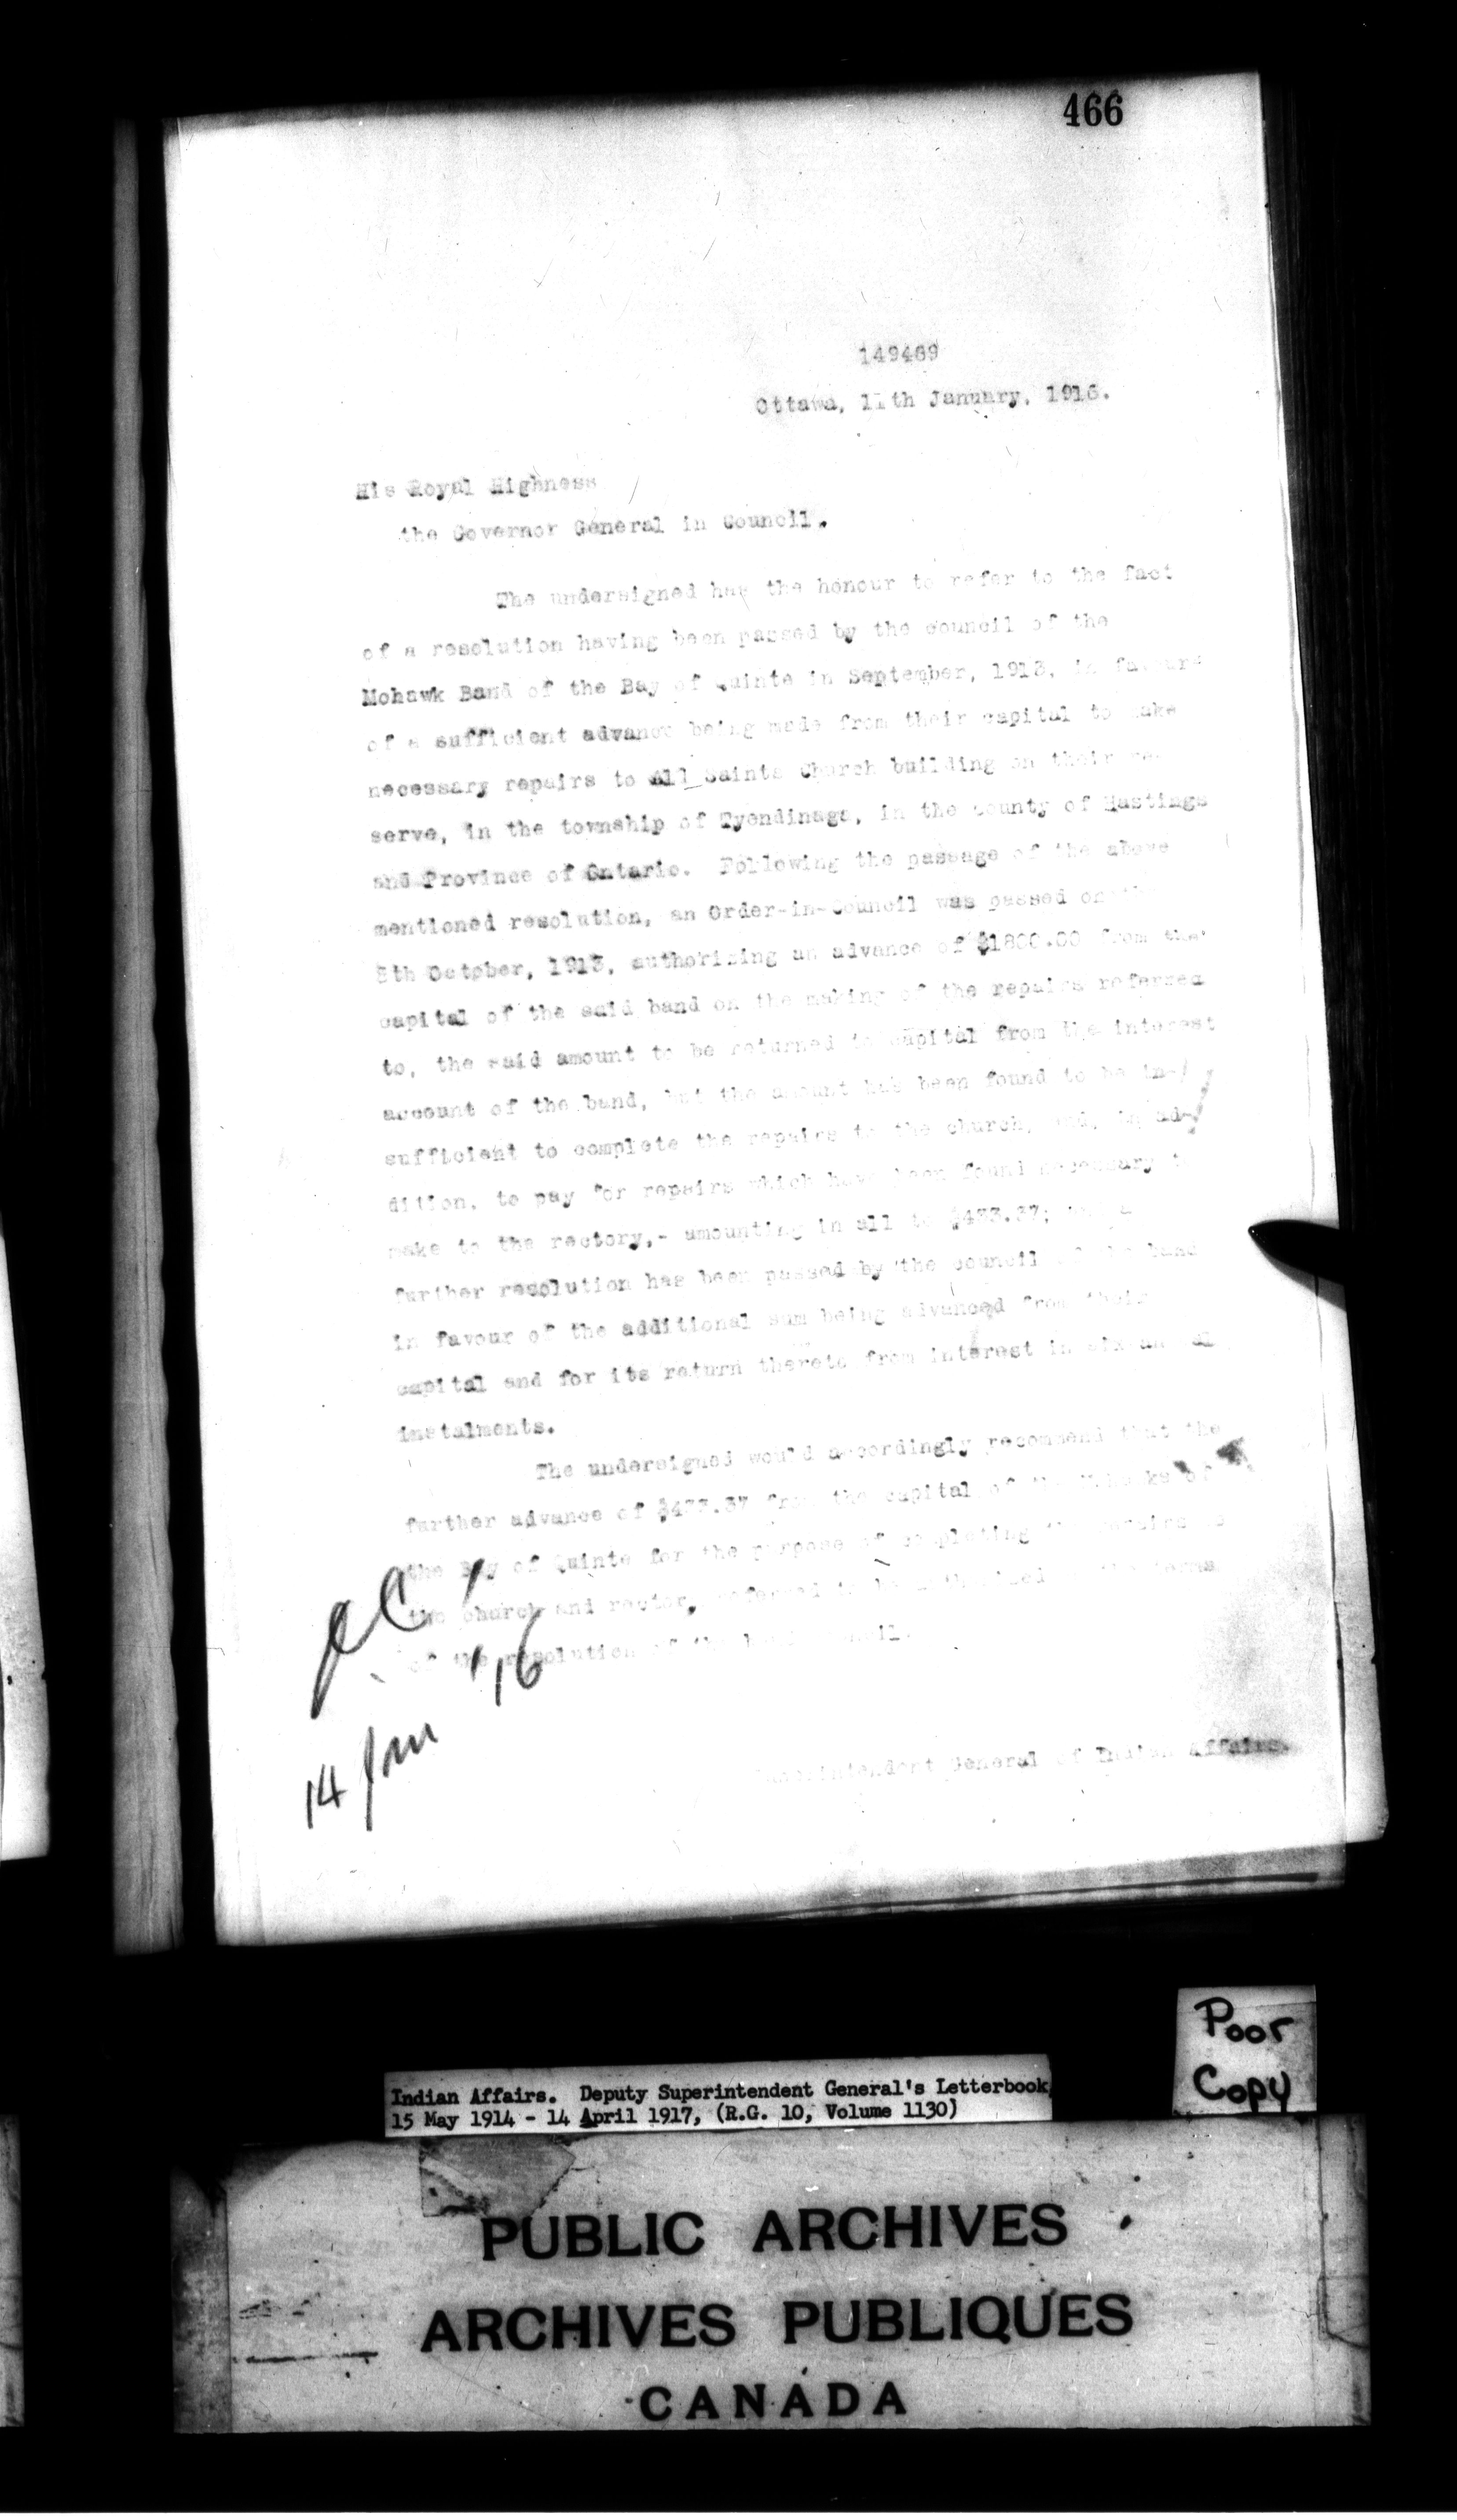 466
149489
Ottawa, 11th January, 1916.
His Royal Highness
the Governor General in Council.
The undersigned has the honour to refer to the fact
of a resolution having been passed by the council of the
Mohawk Band of the Bay of Quinte in September, 1913, in favour
of a sufficient advance being made from their capital to make
necessary repairs to All Saints Church building on their re-
serve, in the township of Tyendinaga, in the county of Hastings
and Province of Ontario. Following the passage of the above
mentioned resolution, an Order-in-Council was passed on the
8th October, 1913, authorizing an advance of $1800.00 from the
capital of the said band on the making of the repairs referred
to, the said amount to be returned to capital from the interest
account of the band, but the amount has been found to be in-
sufficient to complete the repairs to the church, and, in ad-
dition, to pay for repairs which have been found necessary to
make to the rectory,- amounting in all to $433.37; and a
further resolution has been passed by the council of the band
in favour of the additional sum being advanced from their
capital and for its return thereto from interest in
instalments.
The undersigned would accordingly recommend that the
further advance of $433.37 from the capital of the Mohawks of
the Bay of Quinte for the purpose of completing the repairs to
the church and rectory, referred to be authorized the terms
of the resolution of the band council.
Superintendent General of Indian Affairs.
14 Jan '16
Poor
Copy
Indian Affairs. Deputy Superintendent General's Letterbook,
15 May 1914 - 14 April 1917, (R.G. 10, Volume 1130)
PUBLIC ARCHIVES
ARCHIVES PUBLIQUES
CANADA